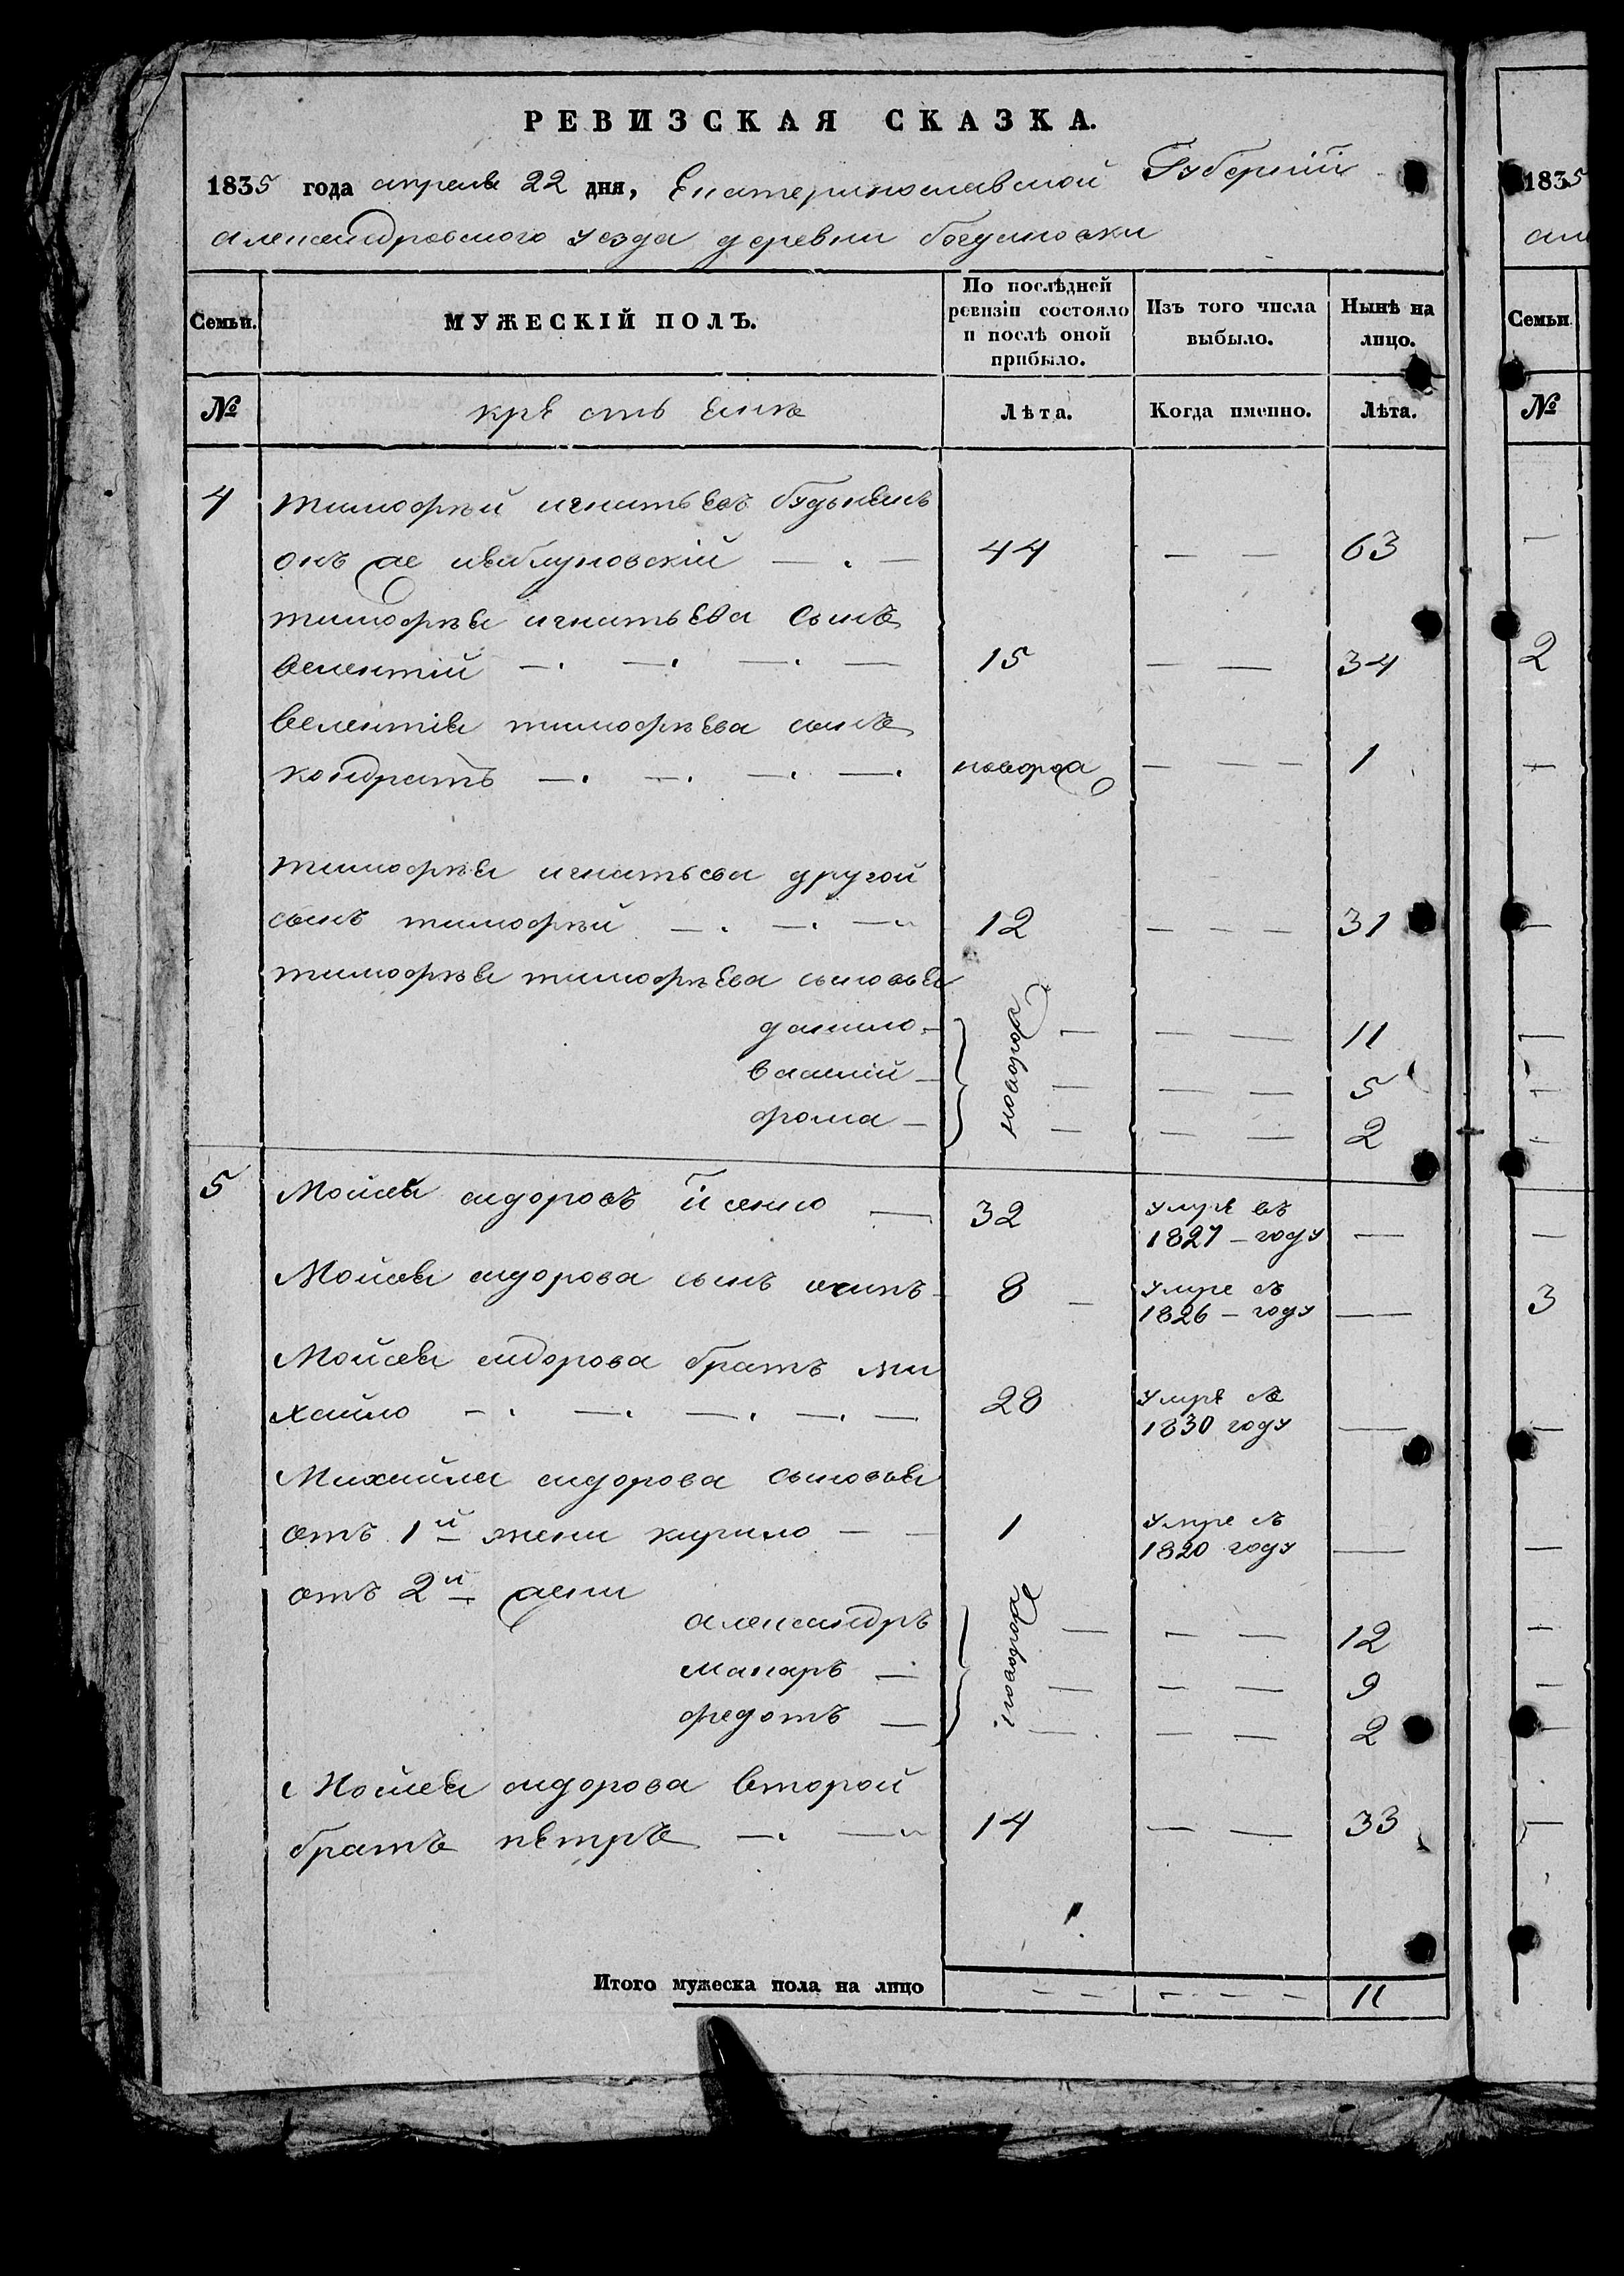 РЕВИЗСКАЯ СКАЗКА.
1835 года апреля 22 дня, Екатеринославской Губернiи
александровского уезда деревни
Семьи. МУЖЕСКIЙ ПОЛЪ. По послѣдней ревизiи состояло и послѣ оной прибыло. Изъ того числа выбыло. Нынѣ на лицо.
№ Лѣта. Когда именно. Лѣта.
4 тимофѣй игнатьевъ
онъ же 44 — — 63
тимофѣя игнатьева сынъ
велентiй 15 — — 34
велентiя тимофѣева сынъ
кондратъ новорож — — — 1
тимофѣя игнатьева другой
сынъ тимофѣй 12 — — — 31
тимофѣя тимофѣева сыновья
данило — новорож — — — 11
василiй — — — — 5
фома — — — — 2
5 Моисей сидоровъ 32 умре въ 1827 – году —
Моисея сидорова сынъ осипъ 8 — умре въ 1826 – году —
Моисея сидорова братъ ми
хайло 28 умре въ 1830 году —
Михайлы сидорова сыновья
отъ 1й жени кирило — — 1 умре въ 1820 году —
отъ 2й жени
александръ новорож — — — 12
макаръ — — — — 9
федотъ — — — — 2
Моисея сидорова второй
братъ петръ 14 — — 33
Итого мужеска пола на лицо — — — — — — 11
1835
Семьи
№
2
3